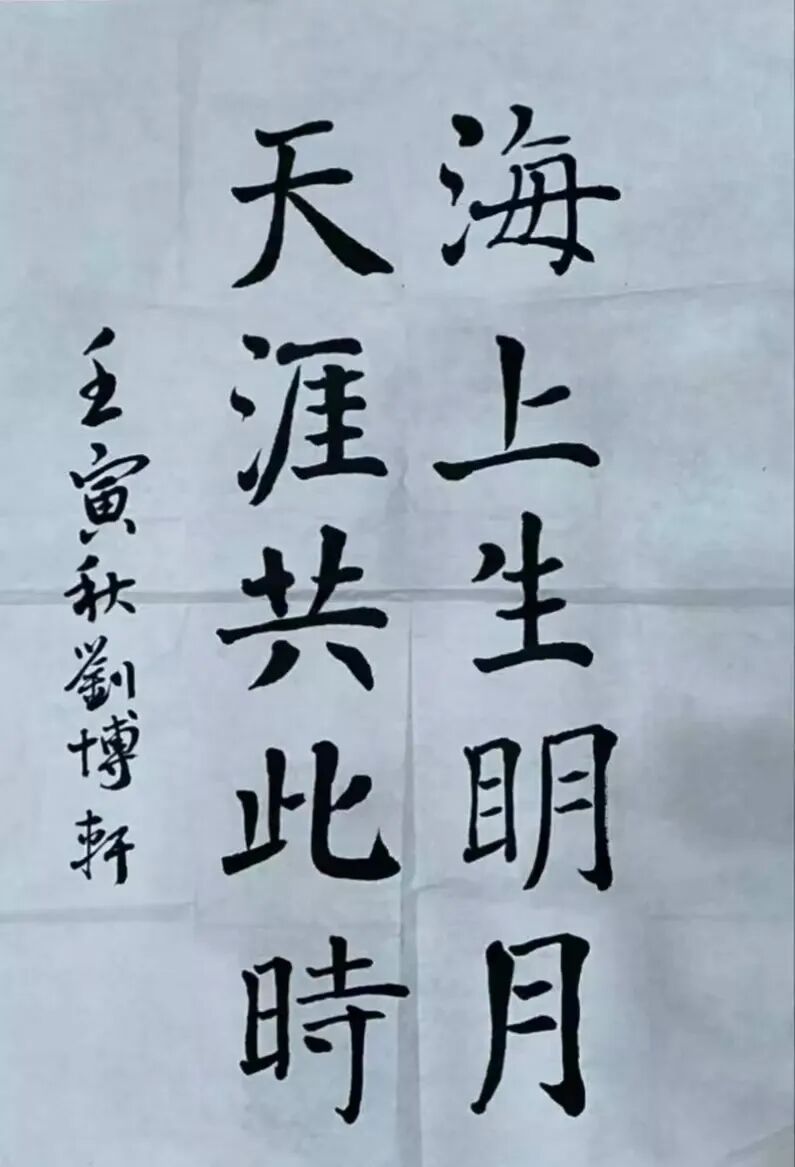 海上生明月
天涯共此時
壬寅秋劉博軒